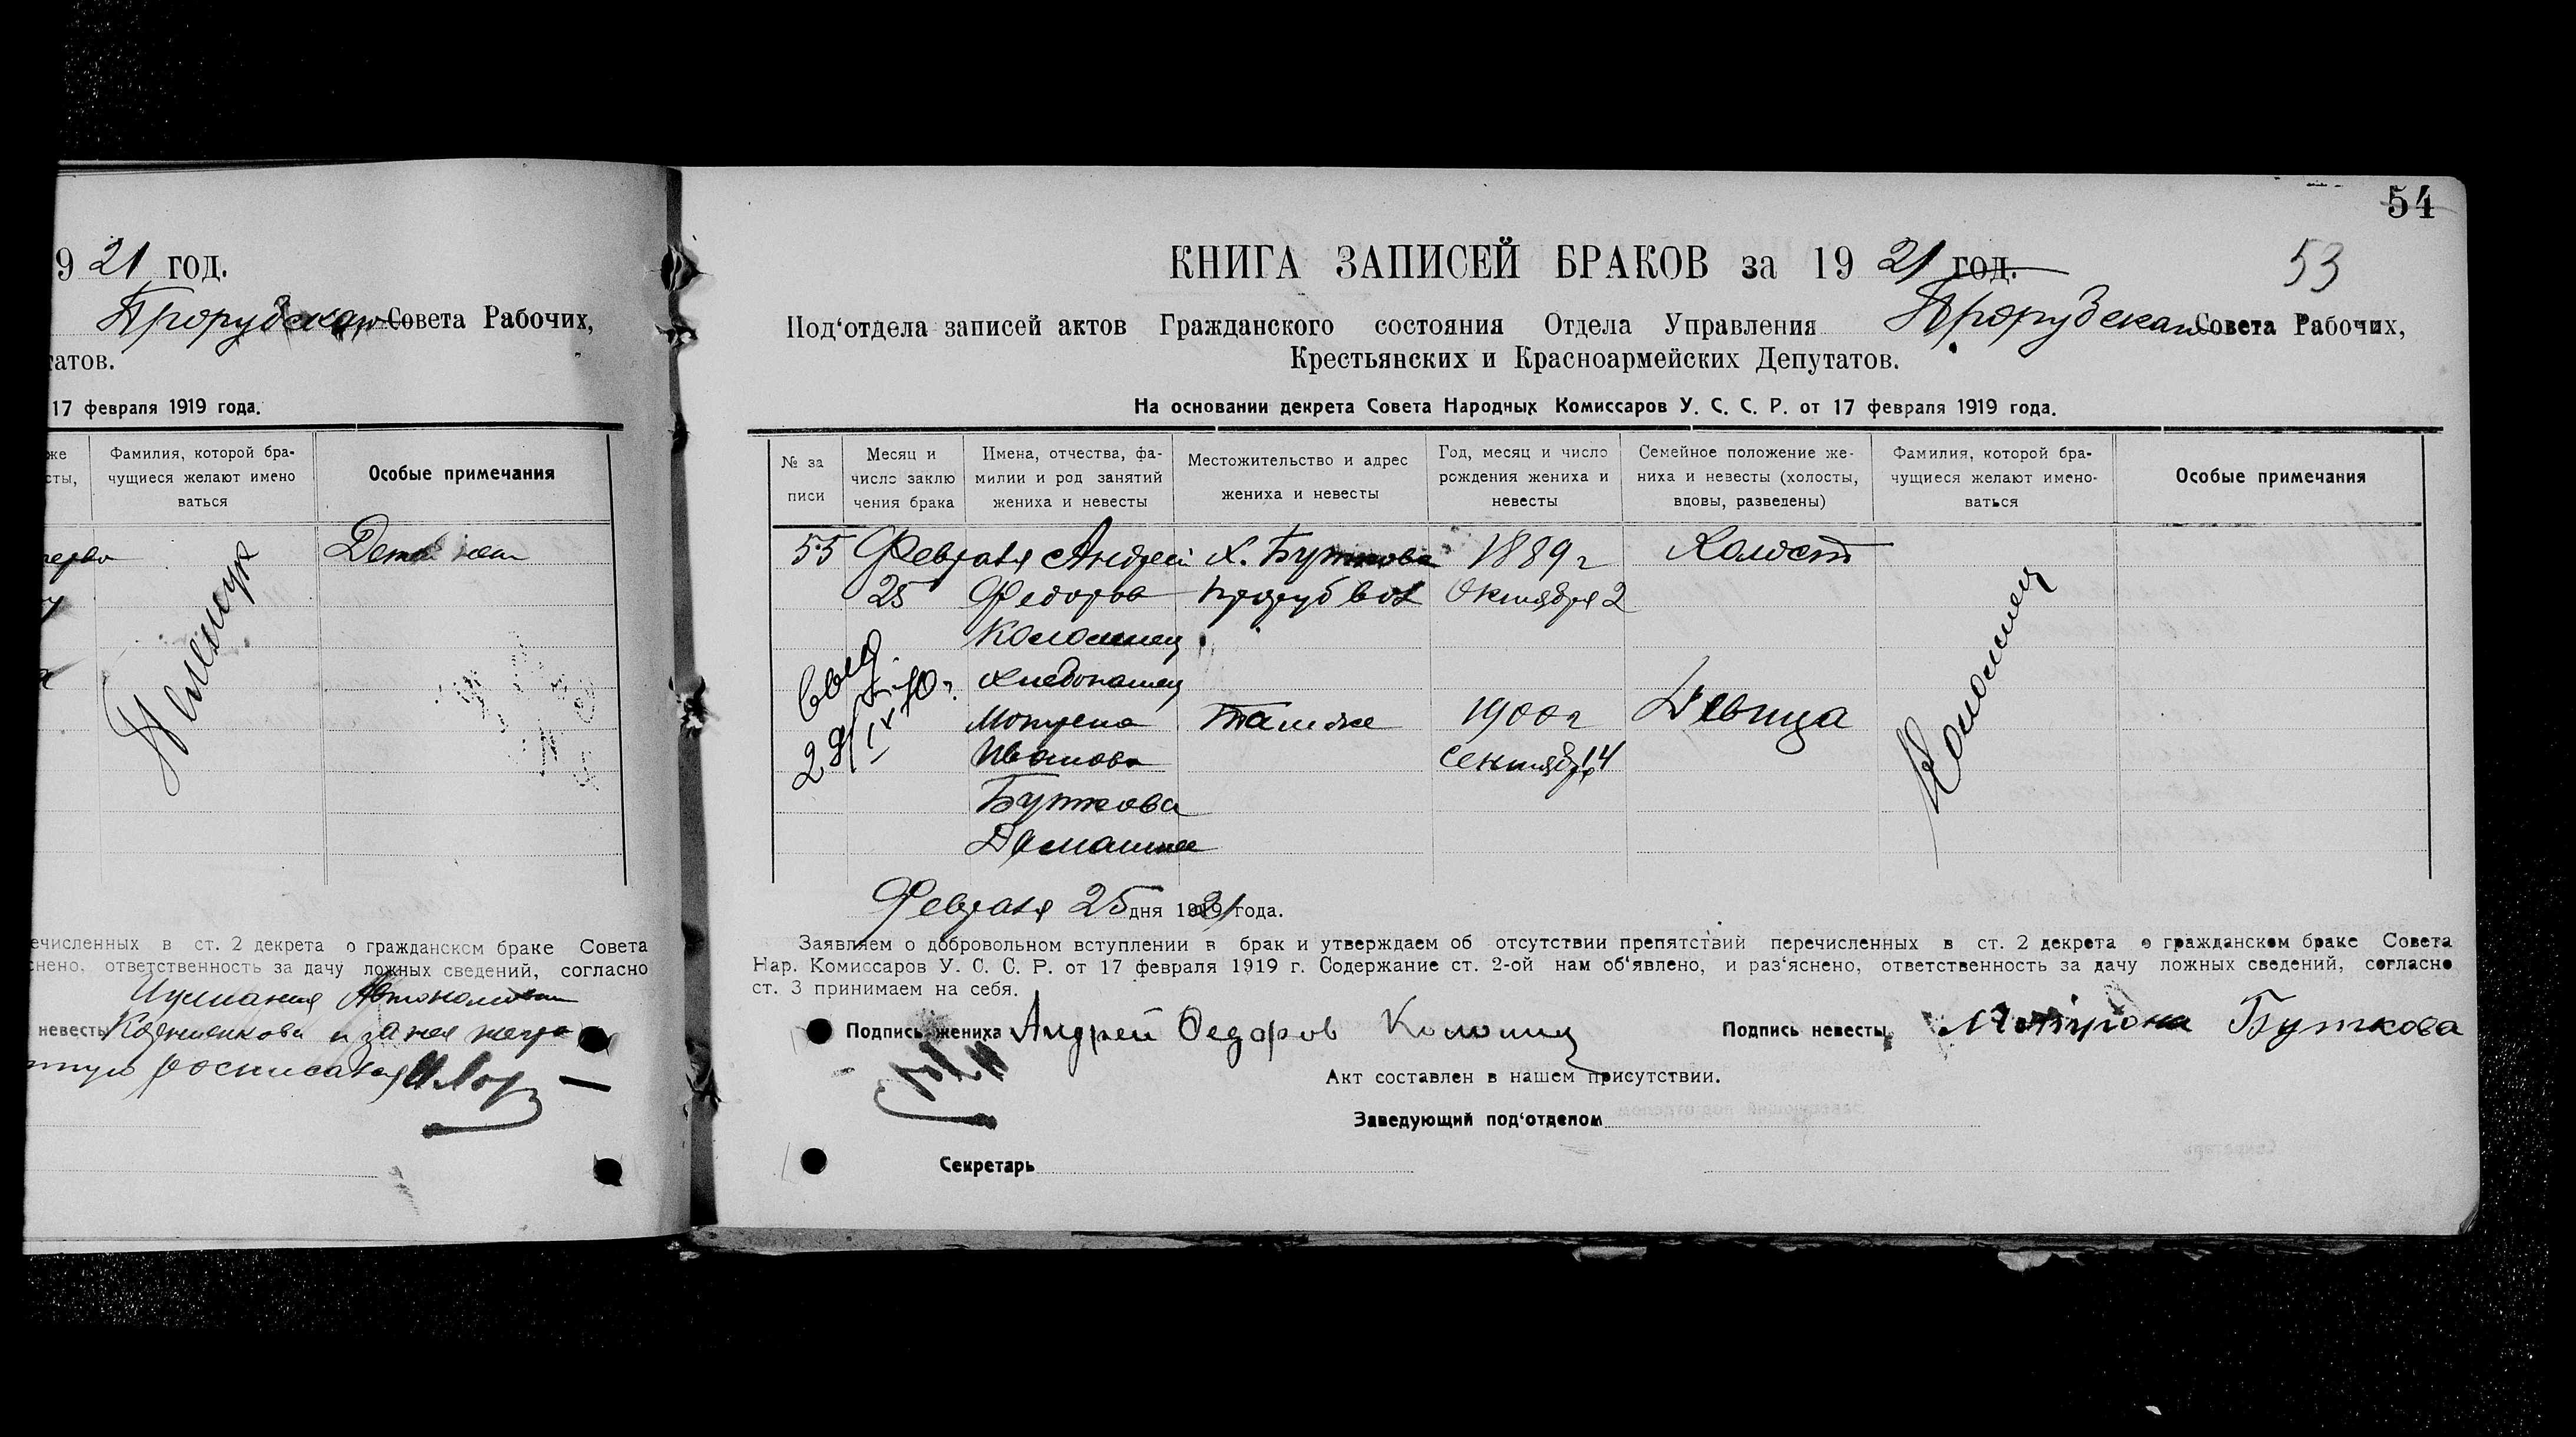 9 21 год.
Совета Рабочих,
татов.
17 февраля 1919 года.
же
сты,
Фамилия, которой бра-
чущиеся желают имено
ваться
Особые примечания
ечисленных в ст. 2 декрета о гражданском браке Совета
снено, ответственность за дачу ложных сведений, согласно
невесты
54
53
КНИГА ЗАПИСЕЙ БРАКОВ за 19 21 год.
Под‘отдела записей актов Гражданского состояния Отдела Управления Прорубскаго Совета Рабочих,
Крестьянских и Красноармейских Депутатов.
На основании декрета Совета Народных Комиссаров У. С. С. Р. от 17 февраля 1919 года.
№ за
писи
Месяц и
число заклю
чения брака
Имена, отчества, фа-
милии и род занятий
жениха и невесты
Местожительство и адрес
жениха и невесты
Год, месяц и число
рождения жениха и
невесты
Семейное положение же-
ниха и невесты (холосты,
вдовы, разведены)
Фамилия, которой бра-
чущиеся желают имено-
ваться
Особые примечания
55 Февраля Андрей Х. Буткова 1889 г Холост
25 Федоров Проруб вол Октября 2
Коломиец
Хлебопашец
Мотрена Та же 1900 г Девица
Иванова Сентября 14
Буткова
Домашнее
Коломиец
Февраля 25 дня 1921 года.
Заявляем о добровольном вступлении в брак и утверждаем об отсутствии препятствий перечисленных в ст. 2 декрета о гражданском браке Совета
Нар. Комиссаров У. С. С. Р. от 17 февраля 1919 г. Содержание ст. 2-ой нам об‘явлено, и раз‘яснено, ответственность за дачу ложных сведений, согласно
ст. 3 принимаем на себя.
Подпись жениха Андрей Федоров Коломиец Подпись невесты Буткова
Акт составлен в нашем присутствии.
Заведующий под‘отделом
Секретарь